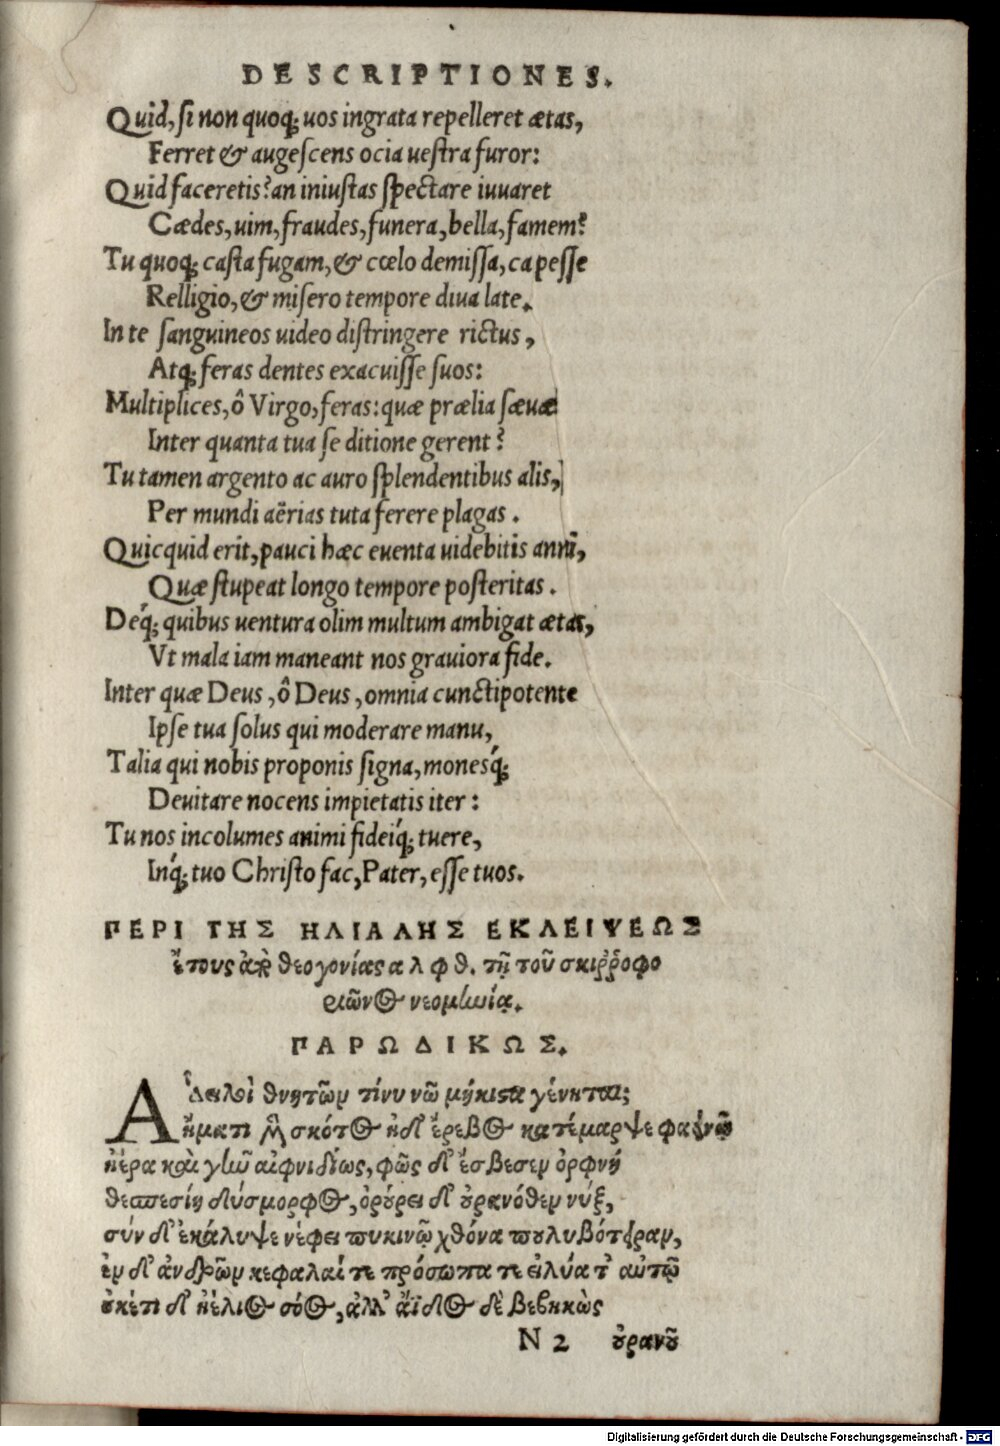 DESCRIPTIONES.
Quid, si non quoq; uos ingrata repelleret ætas,
Ferret & augescens ocia uestra furor:
Quid faceretis? an iniustas spectare iuuaret
Cædes, uim, fraudes, funera, bella, famem?
Tu quoq; casta fugam, & cœlo demissa, capesse
Relligio, & misero tempore diua late.
In te sanguineos uideo distringere rictus,
Atq; feras dentes exacuisse suos:
Multiplices, ô Virgo, feras: quæ prælia sæuæ
Inter quanta tua se ditione gerent?
Tu tamen argento ac auro splendentibus alis,
Per mundi aërias tuta ferere plagas.
Quicquid erit, pauci hæc euenta uidebitis anni,
Quæ stupeat longo tempore posteritas.
Deq́; quibus uentura olim multum ambigat ætas,
Vt mala iam maneant nos grauiora fide.
Inter quæ Deus, ô Deus, omnia cunctipotente
Ipse tua solus qui moderare manu,
Talia qui nobis proponis signa, monesq́;
Deuitare nocens impietatis iter:
Tu nos incolumes animi fideiq́; tuere,
Inq́; tuo Christo fac, Pater, esse tuos.
ΠΕΡΙ ΤΗΣ ΗΛΙΑΔΗΣ ΕΚΛΕΙΨΕΩΣ
ἔτους ἀπὸ θεογονίας α λ φ θ. τῇ τοῦ σκιῤῥοφο
ριῶνος νεομηνίᾳ.
ΠΑΡΩΔΙΚΩΣ.
Ἆ δειλοὶ θνητῶν τίνυ νῶ μήκιστα γένηται;
ἤματι μὲν σκότος ἠδ' ἔρεβος κατέμαρψε φαεινῷ
ἠέρα καὶ γῆν αἰφνιδίως, φῶς δ' ἔσβεσεν ὀρφνὴ
θεσπεσίη δύσμορφος, ὀρώρει δ' οὐρανόθεν νύξ,
σὺν δ' ἐκάλυψε νέφει πυκινῷ χθόνα πουλυβότειραν,
ἐν δ' ἀνδρῶν κεφαλαί τε πρόσωπα τε εἰλύατ' αὐτῷ
οὐκέτι δ' ἠέλιος σόος, ἀλλ' ἄϊδος δὲ βεβηκὼς
N 2 οὐρανοῦ
Digitalisierung gefördert durch die Deutsche Forschungsgemeinschaft - DFG